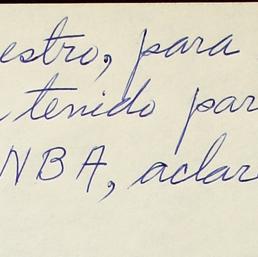 estro, para
tenido par
NBA, aclar